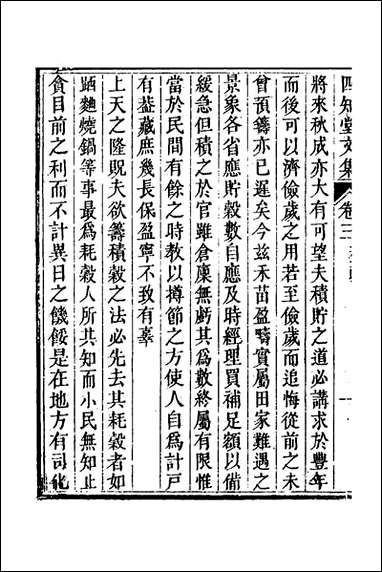 四知堂文集 卷三
將來秋成亦大有可望夫積貯之道必講求於豐年
而後可以濟儉歲之用若至儉歲而追悔從前之未
曾預籌亦已遲矣今玆禾苗盈疇實屬田家難遇之
景象各省應貯穀數自應及時經理買補足額以備
緩急但積之於官雖倉廩無虧其爲數終屬有限惟
當於民間有餘之時教以撙節之方使人自爲計戸
有葢藏庶幾長保盈寧不致有辜
上天之隆貺夫欲籌積穀之法必先去其耗穀者如
跴麯燒鍋等事最爲耗穀人所共知而小民無知止
貪目前之利而不計異日之饑餒是在地方有司化